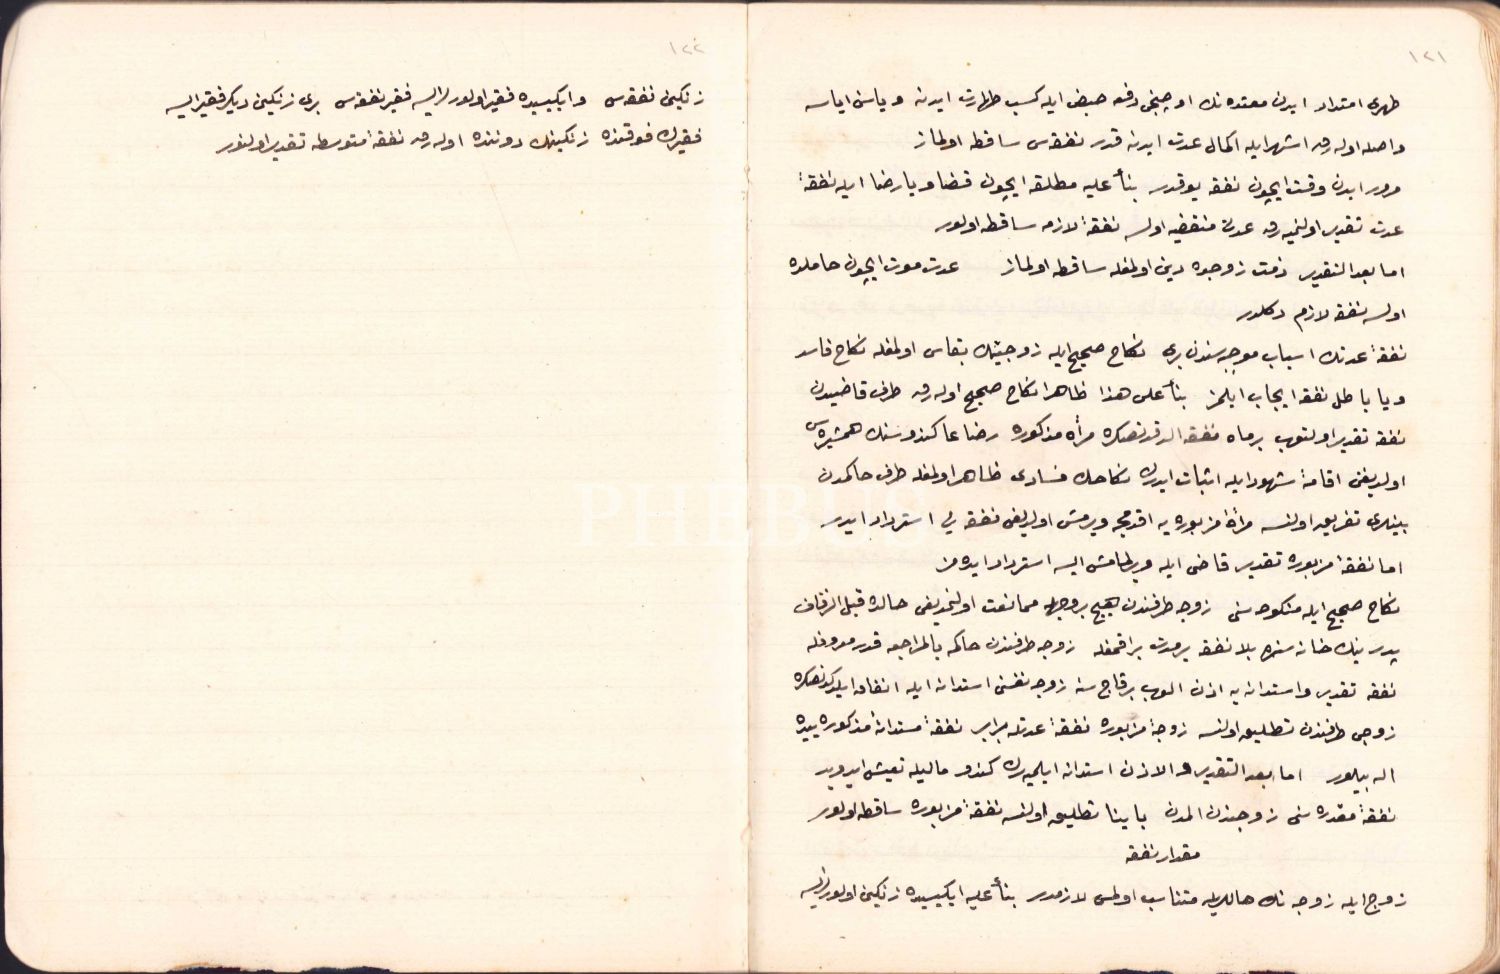 ١٢١
طهری امتداد ایدن معتده نك اوچنجی دفعه حیض ایله كسب طهارت ایدنه ویاسن ایاسه
واصله اوله رق اشهر ایله اكمال عدت ایدنه قدر نفقه‌سی ساقطه اولماز
مرور ایدن وقت ایچون نفقه یوقدر بناءً علیه مطلقه ایچون قضا ویا رضا ایله نفقهٔ
عدت تقدیر اولنمیه رق عدت منقضیه اولسه نفقهٔ لازمه ساقطه اولور
اما بعد التقدیر ذمت زوجده دین اولمغله ساقطه اولماز عدت موت ایچون حاملده
اولسه نفقه لازم دكلدر
نفقهٔ عدتك اسباب موجبه سندن بری نكاح صحیح ایله زوجیتك بقاسی اولمغله نكاح فاسد
ویا باطل نفقه ایجاب ایلمز بناءً علی هذا ظاهرا نكاح صحیح اوله رق طرف قاضیدن
نفقه تقدیر اولنوب برماه نفقه الدقدنصكره مرأهٔ مذكوره رضاعا كندوسنك همشیره‌سی
اولدیغی اقامهٔ شهود ایله اثبات ایدرك نكاحك فسادی ظاهر اولمغله طرف حاكمدن
بینلری تفریق اولنسه مرأهٔ مزبوره یه اقدمجه ویرمش اولدیغی نفقه یی استرداد ایدر
اما نفقهٔ مزبوره تقدیر قاضی ایله ویرلمامش ایسه استرداد ایده مز
نكاح صحیح ایله منكوحه سنی زوجه طرفندن هیچ بروجهله ممانعت اولنمدیغی حالده قبل الزفاف
پدرینك خانه سنده بلا نفقه برمدت براقمغله زوجه طرفندن حاكمه بالمراجعه قدر معروفله
نفقه تقدیر واستدانه یه اذن الوب برقاچ سنه زوجه نفسنی استدانه ایله انفاق ایلدكدنصكره
زوجی طرفندن تطلیق اولنسه زوجهٔ مزبوره نفقهٔ عدتله برابر نفقهٔ مستدانهٔ مذكوره ییده
اله بیلور اما بعد التقدیر والاذن استدانه ایلمیه رك كندو مالیله تعیش ایدوب
نفقهٔ مقدره سنی زوجندن المدن باینا تطلیق اولنسه نفقهٔ مزبوره ساقطه اولور
مقدار نفقه
زوج ایله زوجه نك حاللریله متناسب اولمسی لازمدر بناءً علیه ایكیسیده زنكین اولورلرایسه
١٢٢
زنكین نفقه‌سی وایكیسیده فقیر اولورلرایسه فقیر نفقه‌سی بری زنكین دیكری فقیر ایسه
فقیرك فوقنده زنكینك دوننده اوله رق نفقهٔ متوسطه تقدیر اولنور
PHEBUS